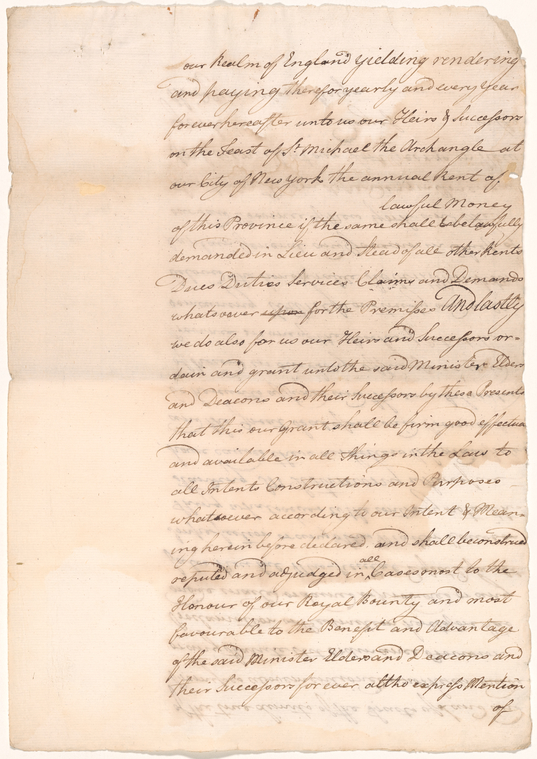 our Realm of England yielding rendering
and paying therefor yearly and every Year
forever hereafter unto us our Heirs & Successors
on the Feast of St Michael the Archangle at
our City of New York the annual Rent of
lawful Money
of this Province if the same shall be lawfully
demanded in Lieu and Stead of all other Rents
Dues Duties Services Claims and Demands
whatsoever for the Premises And lastly
we do also for us our Heirs and Successors or-
dain and grant unto the said Minister Elders
and Deacons and their Successors by these Presents
that this our Grant shall be firm good effectual
and available in all things in the Law to
all Intents Constructions and Purposes
whatsoever according to our Intent & Mean-
ing herein before declared. and shall be construed
reputed and adjudged in all Cases most to the
Honour of our Royal Bounty and most
favourable to the Benefit and Advantage
of the said Minister Elders and Deacons and
their Successors for ever altho express Mention
of